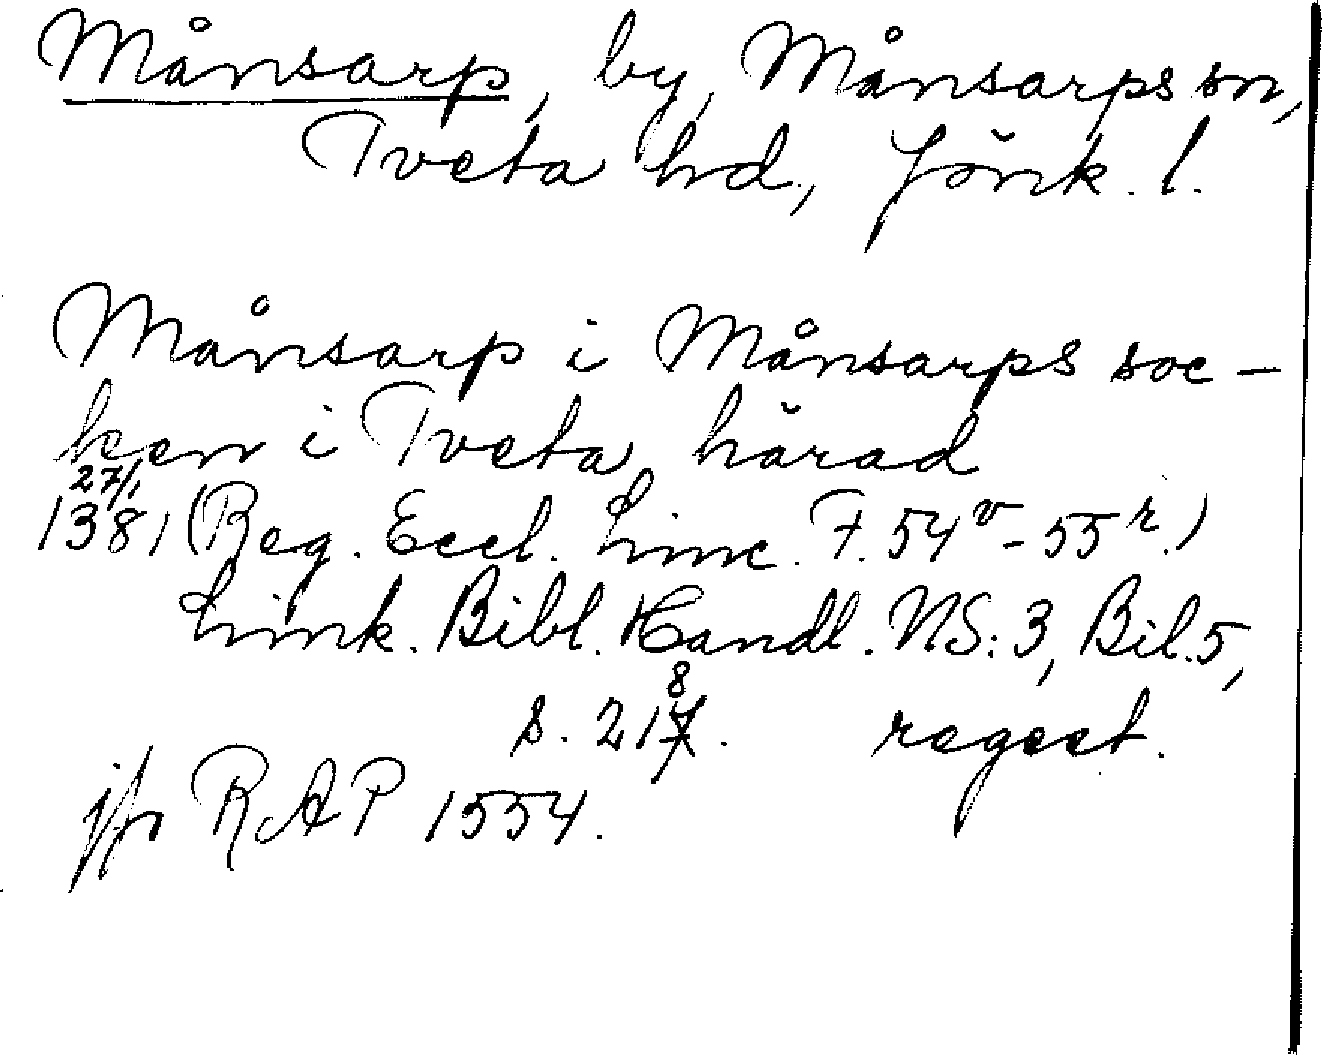 Månsarp, by, Månsarps sn,
Tveta hd., Jönk. l.
Månsarp i Månsarps soc-
ken i Tveta härad
27/1
1381 (Reg. Eccl. Linc. F. 54v - 55r.)
Link. Bibl. Handl. NS: 3, Bil. 5,
s. 218. regest.
jfr RAP 1554.